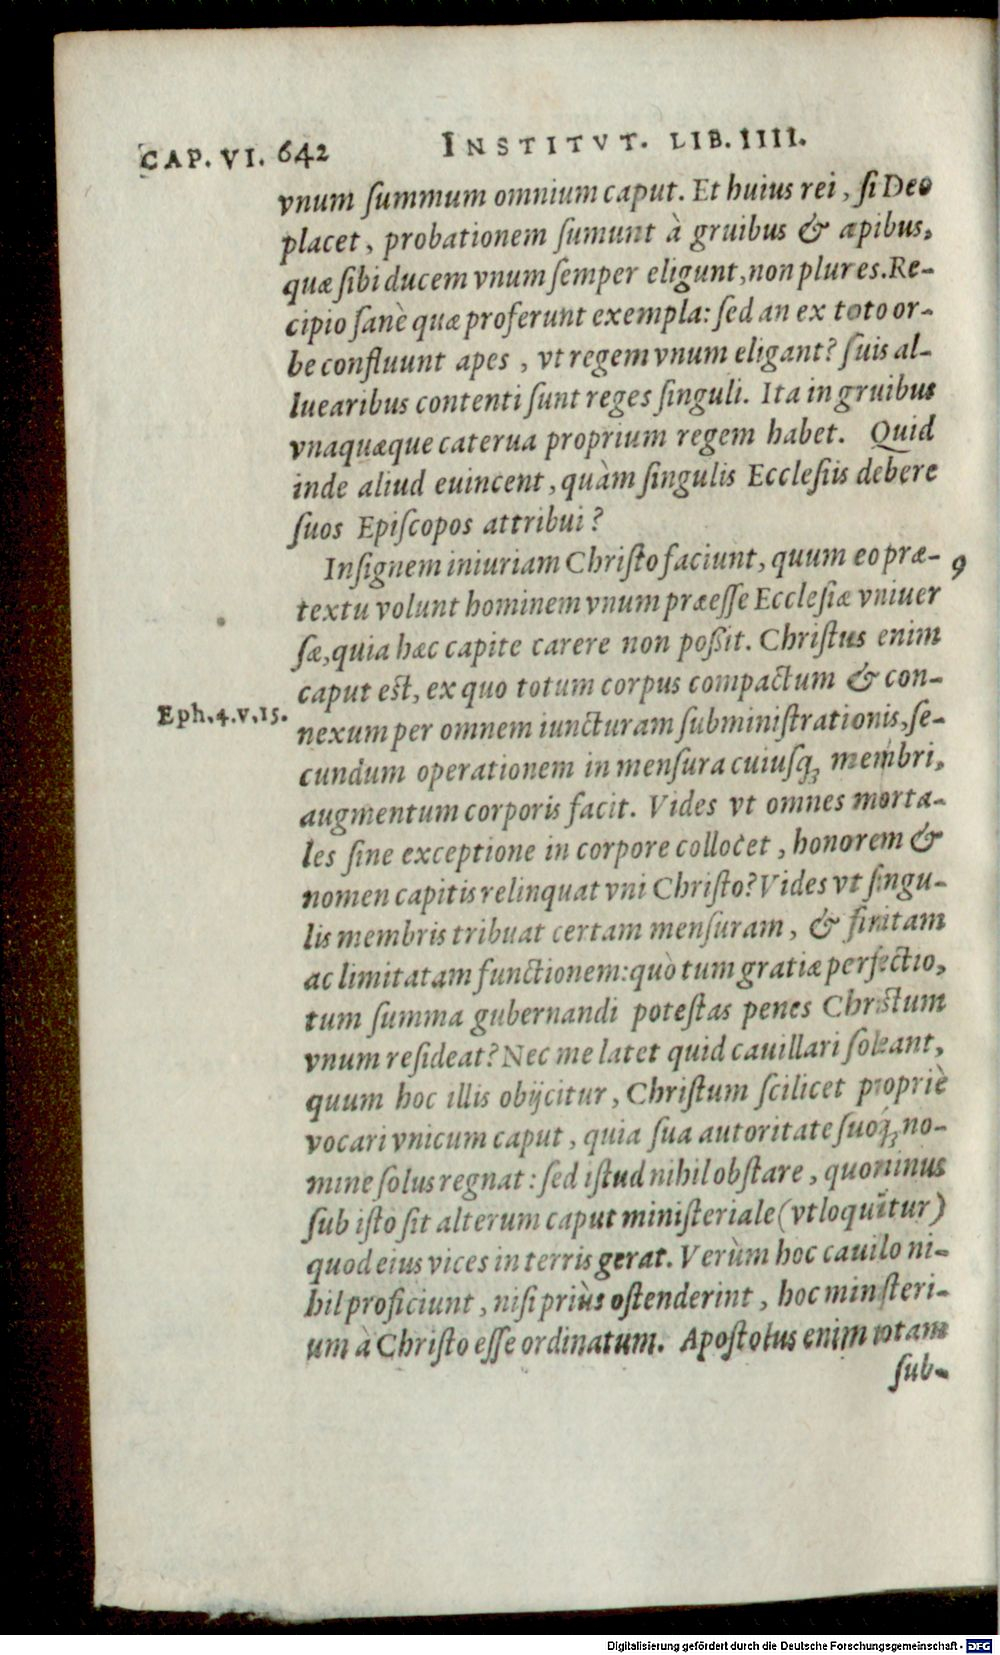 CAP. VI. 642 INSTITVT. LIB. IIII.
vnum ſummum omnium caput. Et huius rei, ſi Deo
placet, probationem ſumunt à gruibus & apibus,
quæ ſibi ducem vnum ſemper eligunt, non plures. Re-
cipio ſanè quæ proferunt exempla: ſed an ex toto or-
be confluunt apes, vt regem vnum eligant? ſuis al-
luearibus contenti ſunt reges ſinguli. Ita in gruibus
vnaquæque caterua proprium regem habet. Quid
inde aliud euincent, quàm ſingulis Eccleſiis debere
ſuos Epiſcopos attribui?
Inſignem iniuriam Chriſto faciunt, quum eo præ- 9
textu volunt hominem vnum præeſſe Eccleſiæ vniuer
ſæ, quia hæc capite carere non poßit. Chriſtus enim
caput eſt, ex quo totum corpus compactum & con-
Eph. 4. v. 15.
nexum per omnem iuncturam ſubminiſtrationis, ſe-
cundum operationem in menſura cuiuſq; membri,
augmentum corporis facit. Vides vt omnes morta-
les ſine exceptione in corpore collocet, honorem &
nomen capitis relinquat vni Chriſto? Vides vt ſingu-
lis membris tribuat certam menſuram, & finitam
ac limitatam functionem: quò tum gratiæ perfectio,
tum ſumma gubernandi poteſtas penes Chriſtum
vnum reſideat? Nec me latet quid cauillari ſoleant,
quum hoc illis obijcitur, Chriſtum ſcilicet propriè
vocari vnicum caput, quia ſua autoritate ſuoq́; no-
mine ſolus regnat: ſed iſtud nihil obſtare, quominus
ſub iſto ſit alterum caput miniſteriale (vt loquūtur)
quod eius vices in terris gerat. Verùm hoc cauilo ni-
hil proficiunt, niſi priùs oſtenderint, hoc minſteri-
um à Chriſto eſſe ordinatum. Apoſtolus enim totam
ſub-
Digitalisierung gefördert durch die Deutsche Forschungsgemeinschaft - DFG